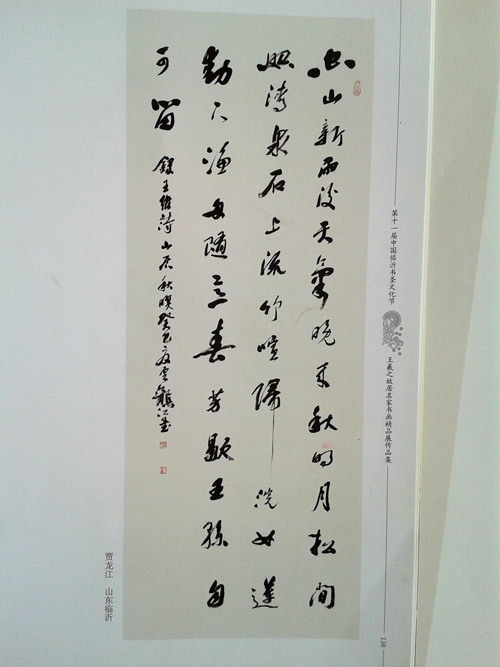 空山新雨後天氣晚来秋明月松間
照清泉石上流竹喧歸浣女蓮
動下漁舟隨意春芳歇王孫自
可留
録王維詩山居秋暝癸巳夏龍江書
第十一届中国临沂书圣文化节
王羲之故居名家书画精品展作品集
贾龙江 山东临沂